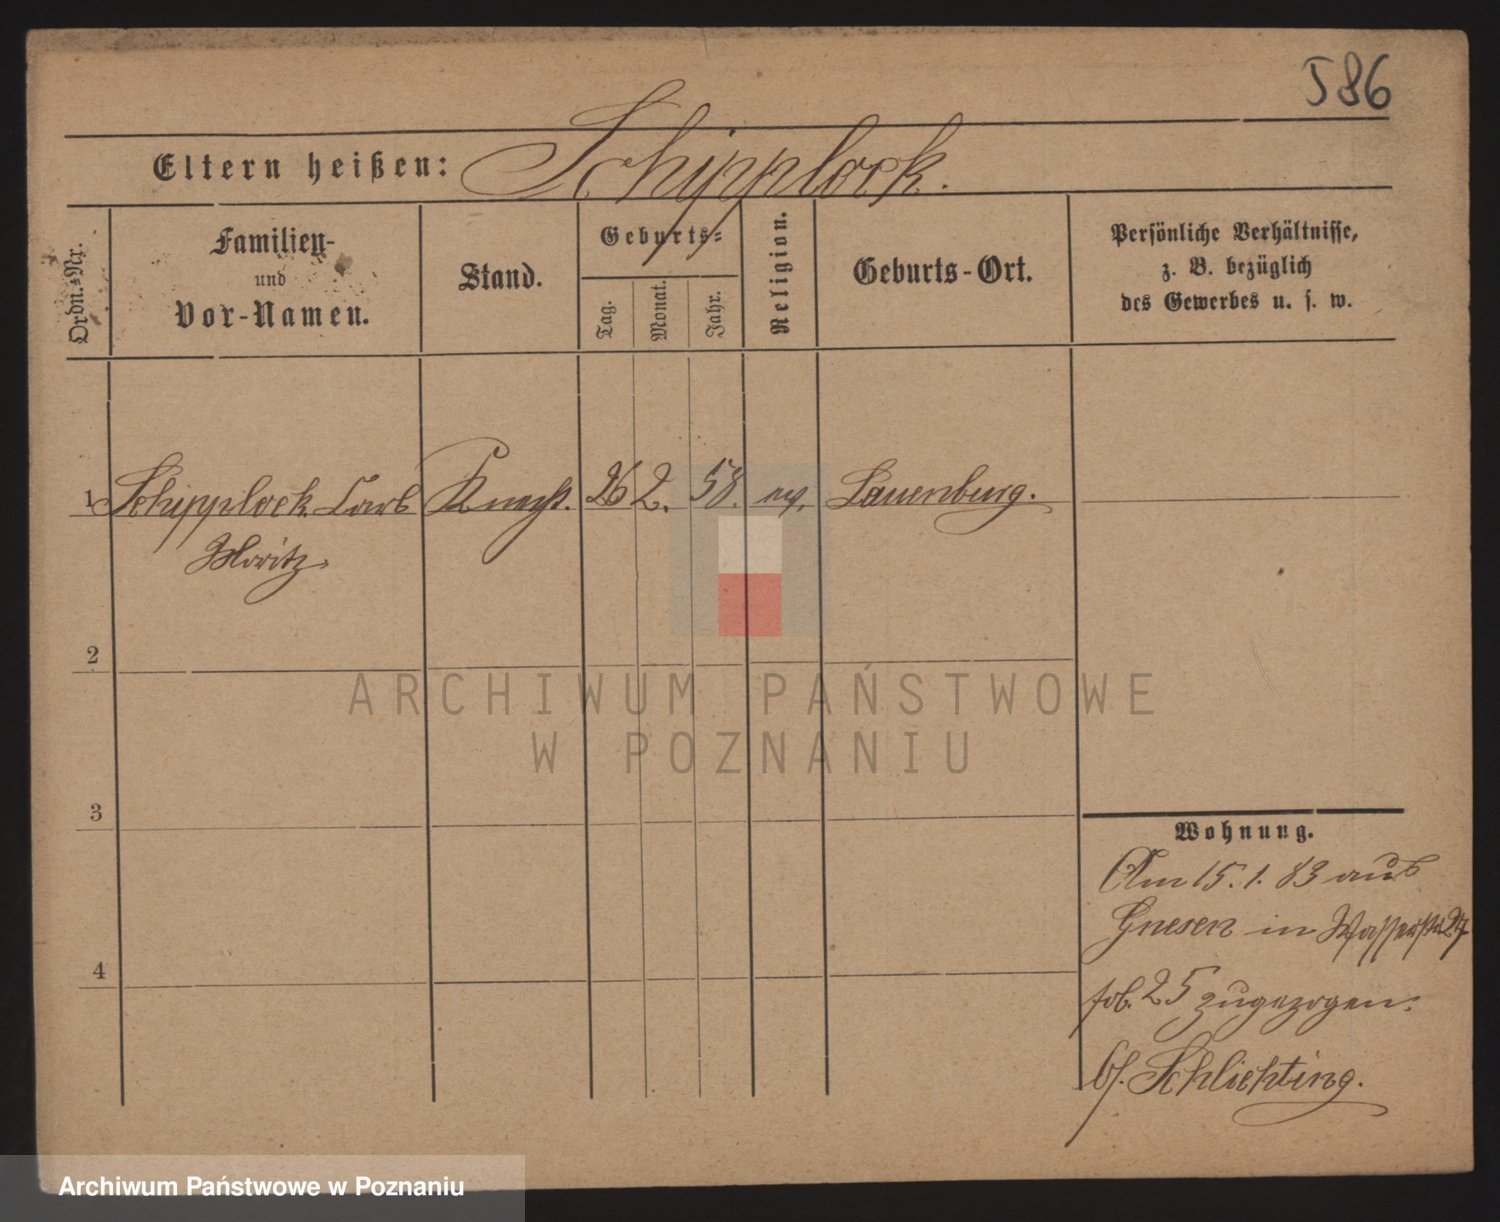 586
Eltern heißen: Schipplock.
Ordn.-Nr.
Familien-
und
Vor-Namen.
Stand.
Geburts-
Tag.
Monat.
Jahr.
Religion.
Geburts-Ort.
Persönliche Verhältnisse,
z. B. bezüglich
des Gewerbes u. s. w.
1 Schipplock Carl Knecht. 26 2. 58. ev. Lauenburg.
Moritz.
2
ARCHIWUM PAŃSTWOWE
W POZNANIU
3
Wohnung.
Am 15. 1. 83 aus
Gnesen in Wasserstr 27
4
25 zugezogen.
Schlichting.
Archiwum Państwowe w Poznaniu